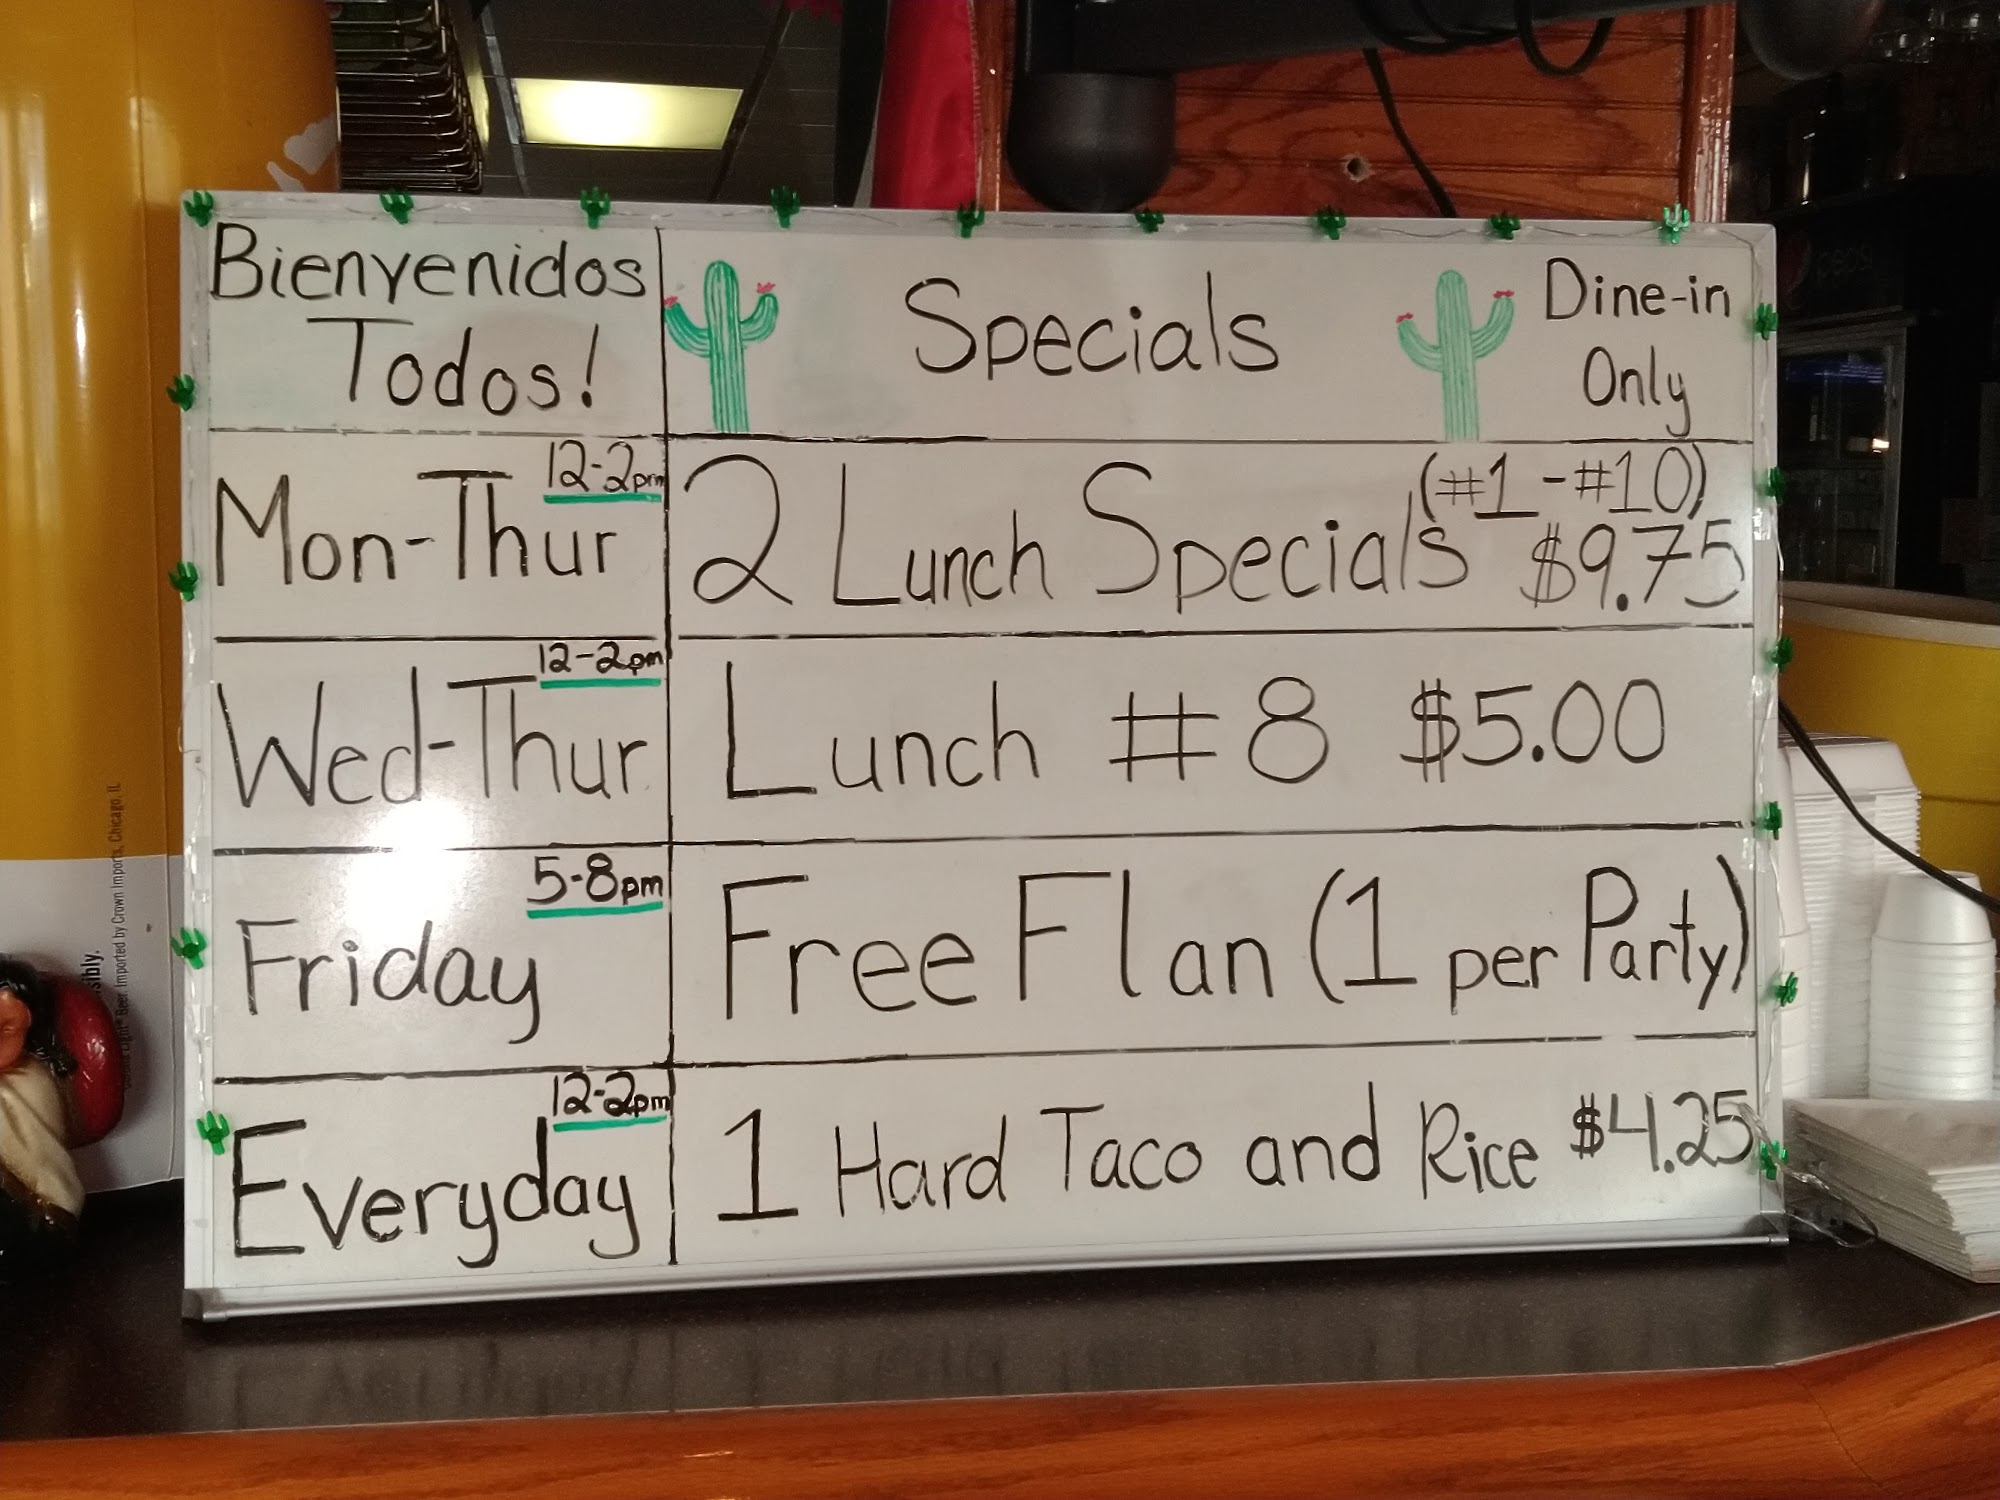 Bienvenidos
Todos!
Specials
Dine-in
Only
12-2pm
Mon-Thur
(#1-#10)
2 Lunch Specials $9.75
12-2pm
Wed-Thur
Lunch #8 $5.00
5-8pm
Friday
Free Flan (1 per Party)
12-2pm
Everyday
1 Hard Taco and Rice $4.25
Light® Beer Imported by Crown Imports, Chicago, IL
pepsi